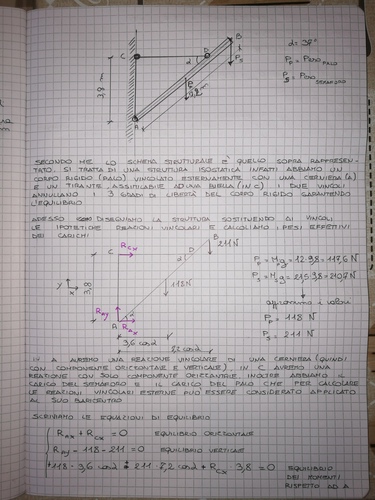 C
D
B
α
3,8 m
P_P
P_S
A
α = 37°
P_P = PESO PALO
P_S = PESO SEMAFORO
SECONDO ME LO SCHEMA STRUTTURALE È QUELLO SOPRA RAPPRESEN-
TATO. SI TRATTA DI UNA STRUTTURA ISOSTATICA INFATTI ABBIAMO UN
CORPO RIGIDO (PALO) VINCOLATO ESTERNAMENTE CON UNA CERNIERA (A)
E UN TIRANTE, ASSIMILABILE AD UNA BIELLA (IN C). I DUE VINCOLI
ANNULLANO I 3 GRADI DI LIBERTÀ DEL CORPO RIGIDO GARANTENDO
L'EQUILIBRIO
ADESSO RIDISEGNIAMO LA STRUTTURA SOSTITUENDO AI VINCOLI
LE IPOTETICHE REAZIONI VINCOLARI E CALCOLIAMO I PESI EFFETTIVI
DEI CARICHI
C R_CX
B
D
211 N
α
118 N
y
x
3,8
R_AY
A
R_AX
α
3,6 cosα
7,2 cosα
P_P = M_P g = 12·9,8 = 117,6 N
P_S = M_S g = 21,5·9,8 = 210,7 N
approssimo i valori
P_P = 118 N
P_S = 211 N
IN A AVREMO UNA REAZIONE VINCOLARE DI UNA CERNIERA (QUINDI
CON COMPONENTE ORIZZONTALE E VERTICALE). IN C AVREMO UNA
REAZIONE CON SOLO COMPONENTE ORIZZONTALE. INOLTRE ABBIAMO IL
CARICO DEL SEMAFORO E IL CARICO DEL PALO CHE PER CALCOLARE
LE REAZIONI VINCOLARI ESTERNE PUÒ ESSERE CONSIDERATO APPLICATO
AL SUO BARICENTRO
SCRIVIAMO LE EQUAZIONI DI EQUILIBRIO
R_AX + R_CX = 0 EQUILIBRIO ORIZZONTALE
R_AY - 118 - 211 = 0 EQUILIBRIO VERTICALE
+118 · 3,6 cosα + 211 · 7,2 cosα + R_CX · 3,8 = 0 EQUILIBRIO
DEI MOMENTI
RISPETTO AD A